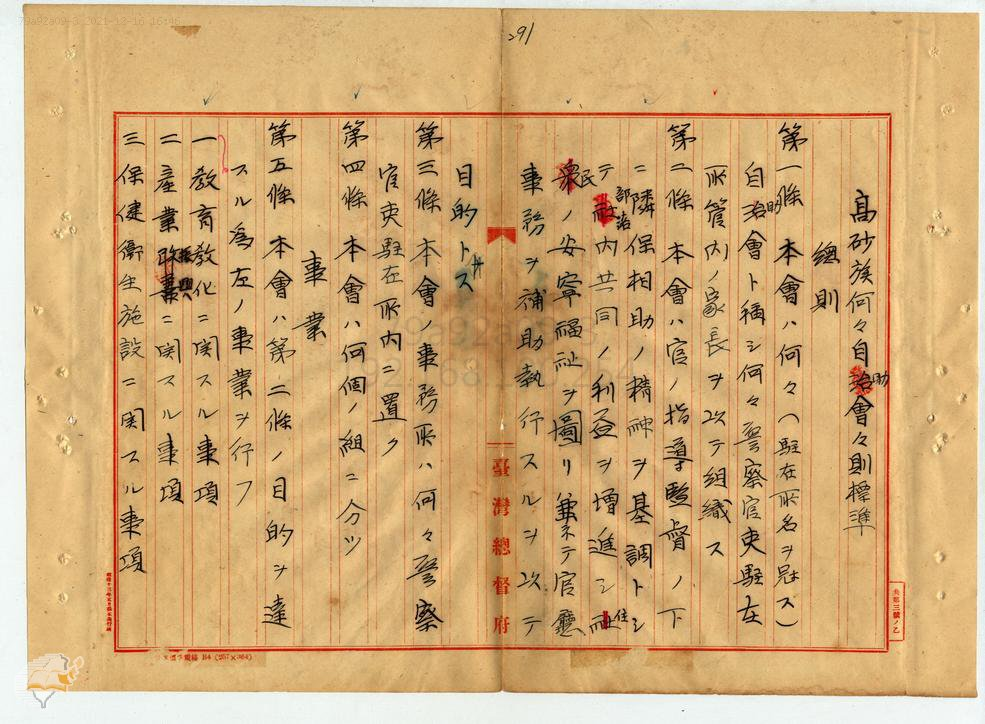 79a92a09-3 2021-12-16 16:46
291
高砂族何々自助會々則標準
總則
第一條 本會ハ何々(駐在所名ヲ冠ス)
自助會ト稱シ何々警察官吏駐在
所管內ノ家長ヲ以テ組織ス
第二條 本會ハ官ノ指導監督ノ下
ニ隣保相助ノ精神ヲ基調トシ
テ部落內共同ノ利益ヲ增進シ住
民ノ安寧福祉ヲ圖リ兼ネテ官廳
事務ヲ補助執行スルヲ以テ
目的トス
第三條 本會ノ事務所ハ何々警察
官吏駐在所內ニ置ク
第四條 本會ハ何個ノ組ニ分ツ
事業
第五條 本會ハ第二條ノ目的ヲ達
スル爲左ノ事業ヲ行フ
一 敎育敎化ニ関スル事項
二 產業振興ニ関スル事項
三 保健衞生施設ニ関スル事項
臺灣總督府